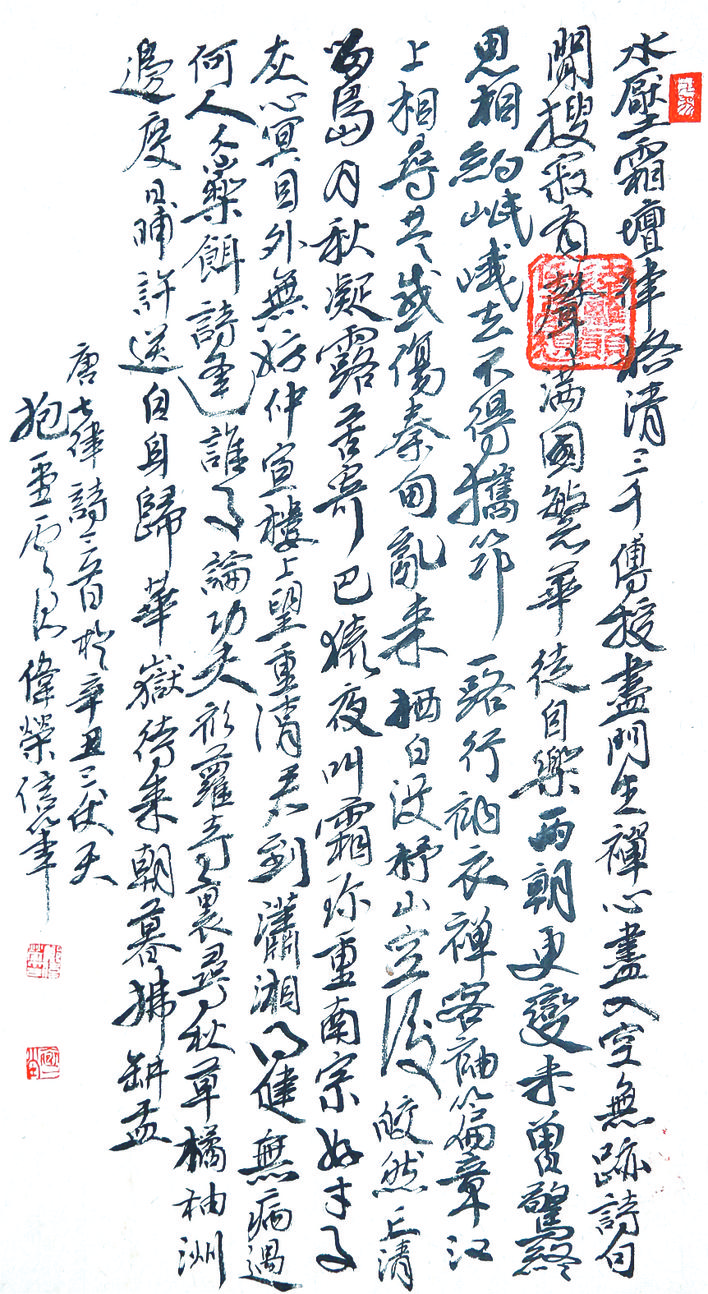 水壓霜壇律格清三千傳授盡門生禪心盡入空無跡詩句
閒搜寂有聲滿國繁華徒自樂兩朝更變未曾驚終
思相約岷峨去不得攜筇一路行衲衣禪客袖篇章江
上相尋共感傷秦甸亂來栖白沒杼山空後皎然亡清
留島月秋凝露苦寄巴猿夜叫霜珍重南宗好才子
灰心冥目外無妨仲宣樓上望重湖君到瀟湘得健無病過
何人分藥餌詩逢誰子論功夫杉蘿寺裏尋秋草橘柚洲
邊度日晡許送自身歸華嶽待來朝暮拂缾盂
唐七律詩三首於辛丑三伏天
抱雲偉榮信筆